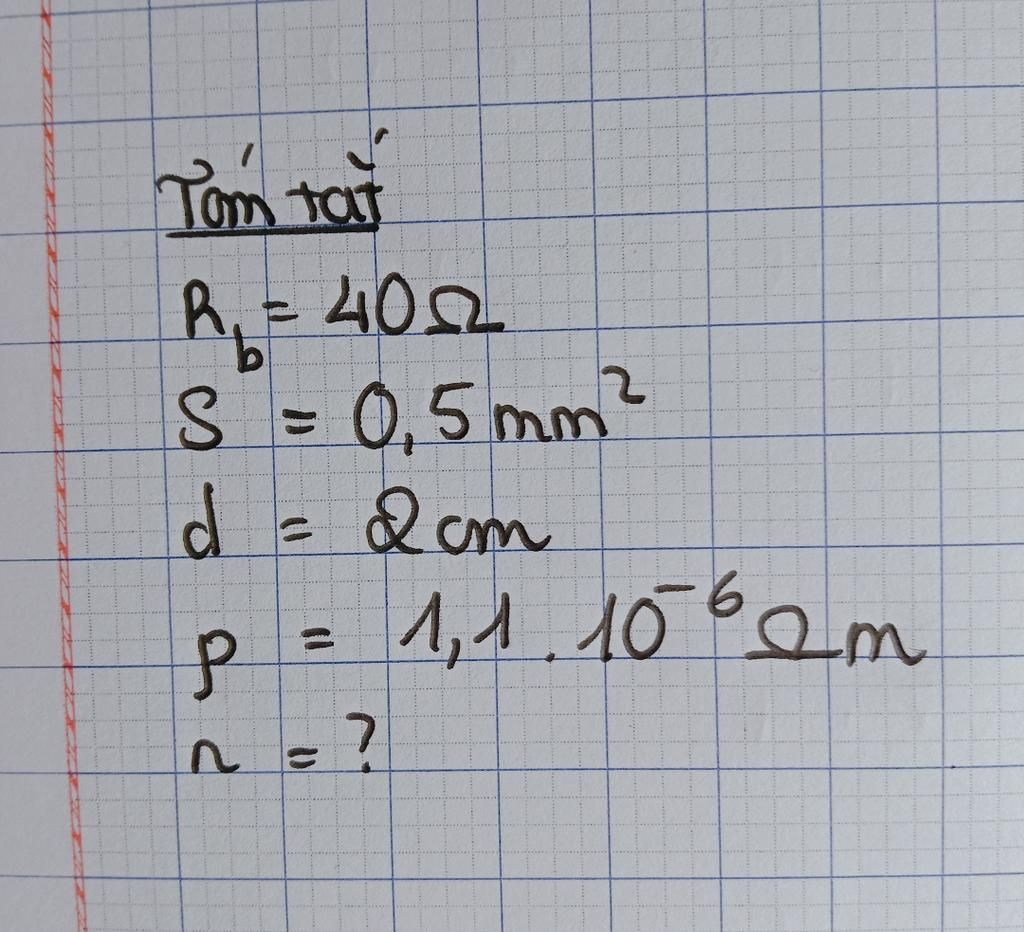 Tóm tắt
R_b = 40Ω
S = 0,5 mm²
d = 2cm
ρ = 1,1 . 10⁻⁶ Ωm
n = ?